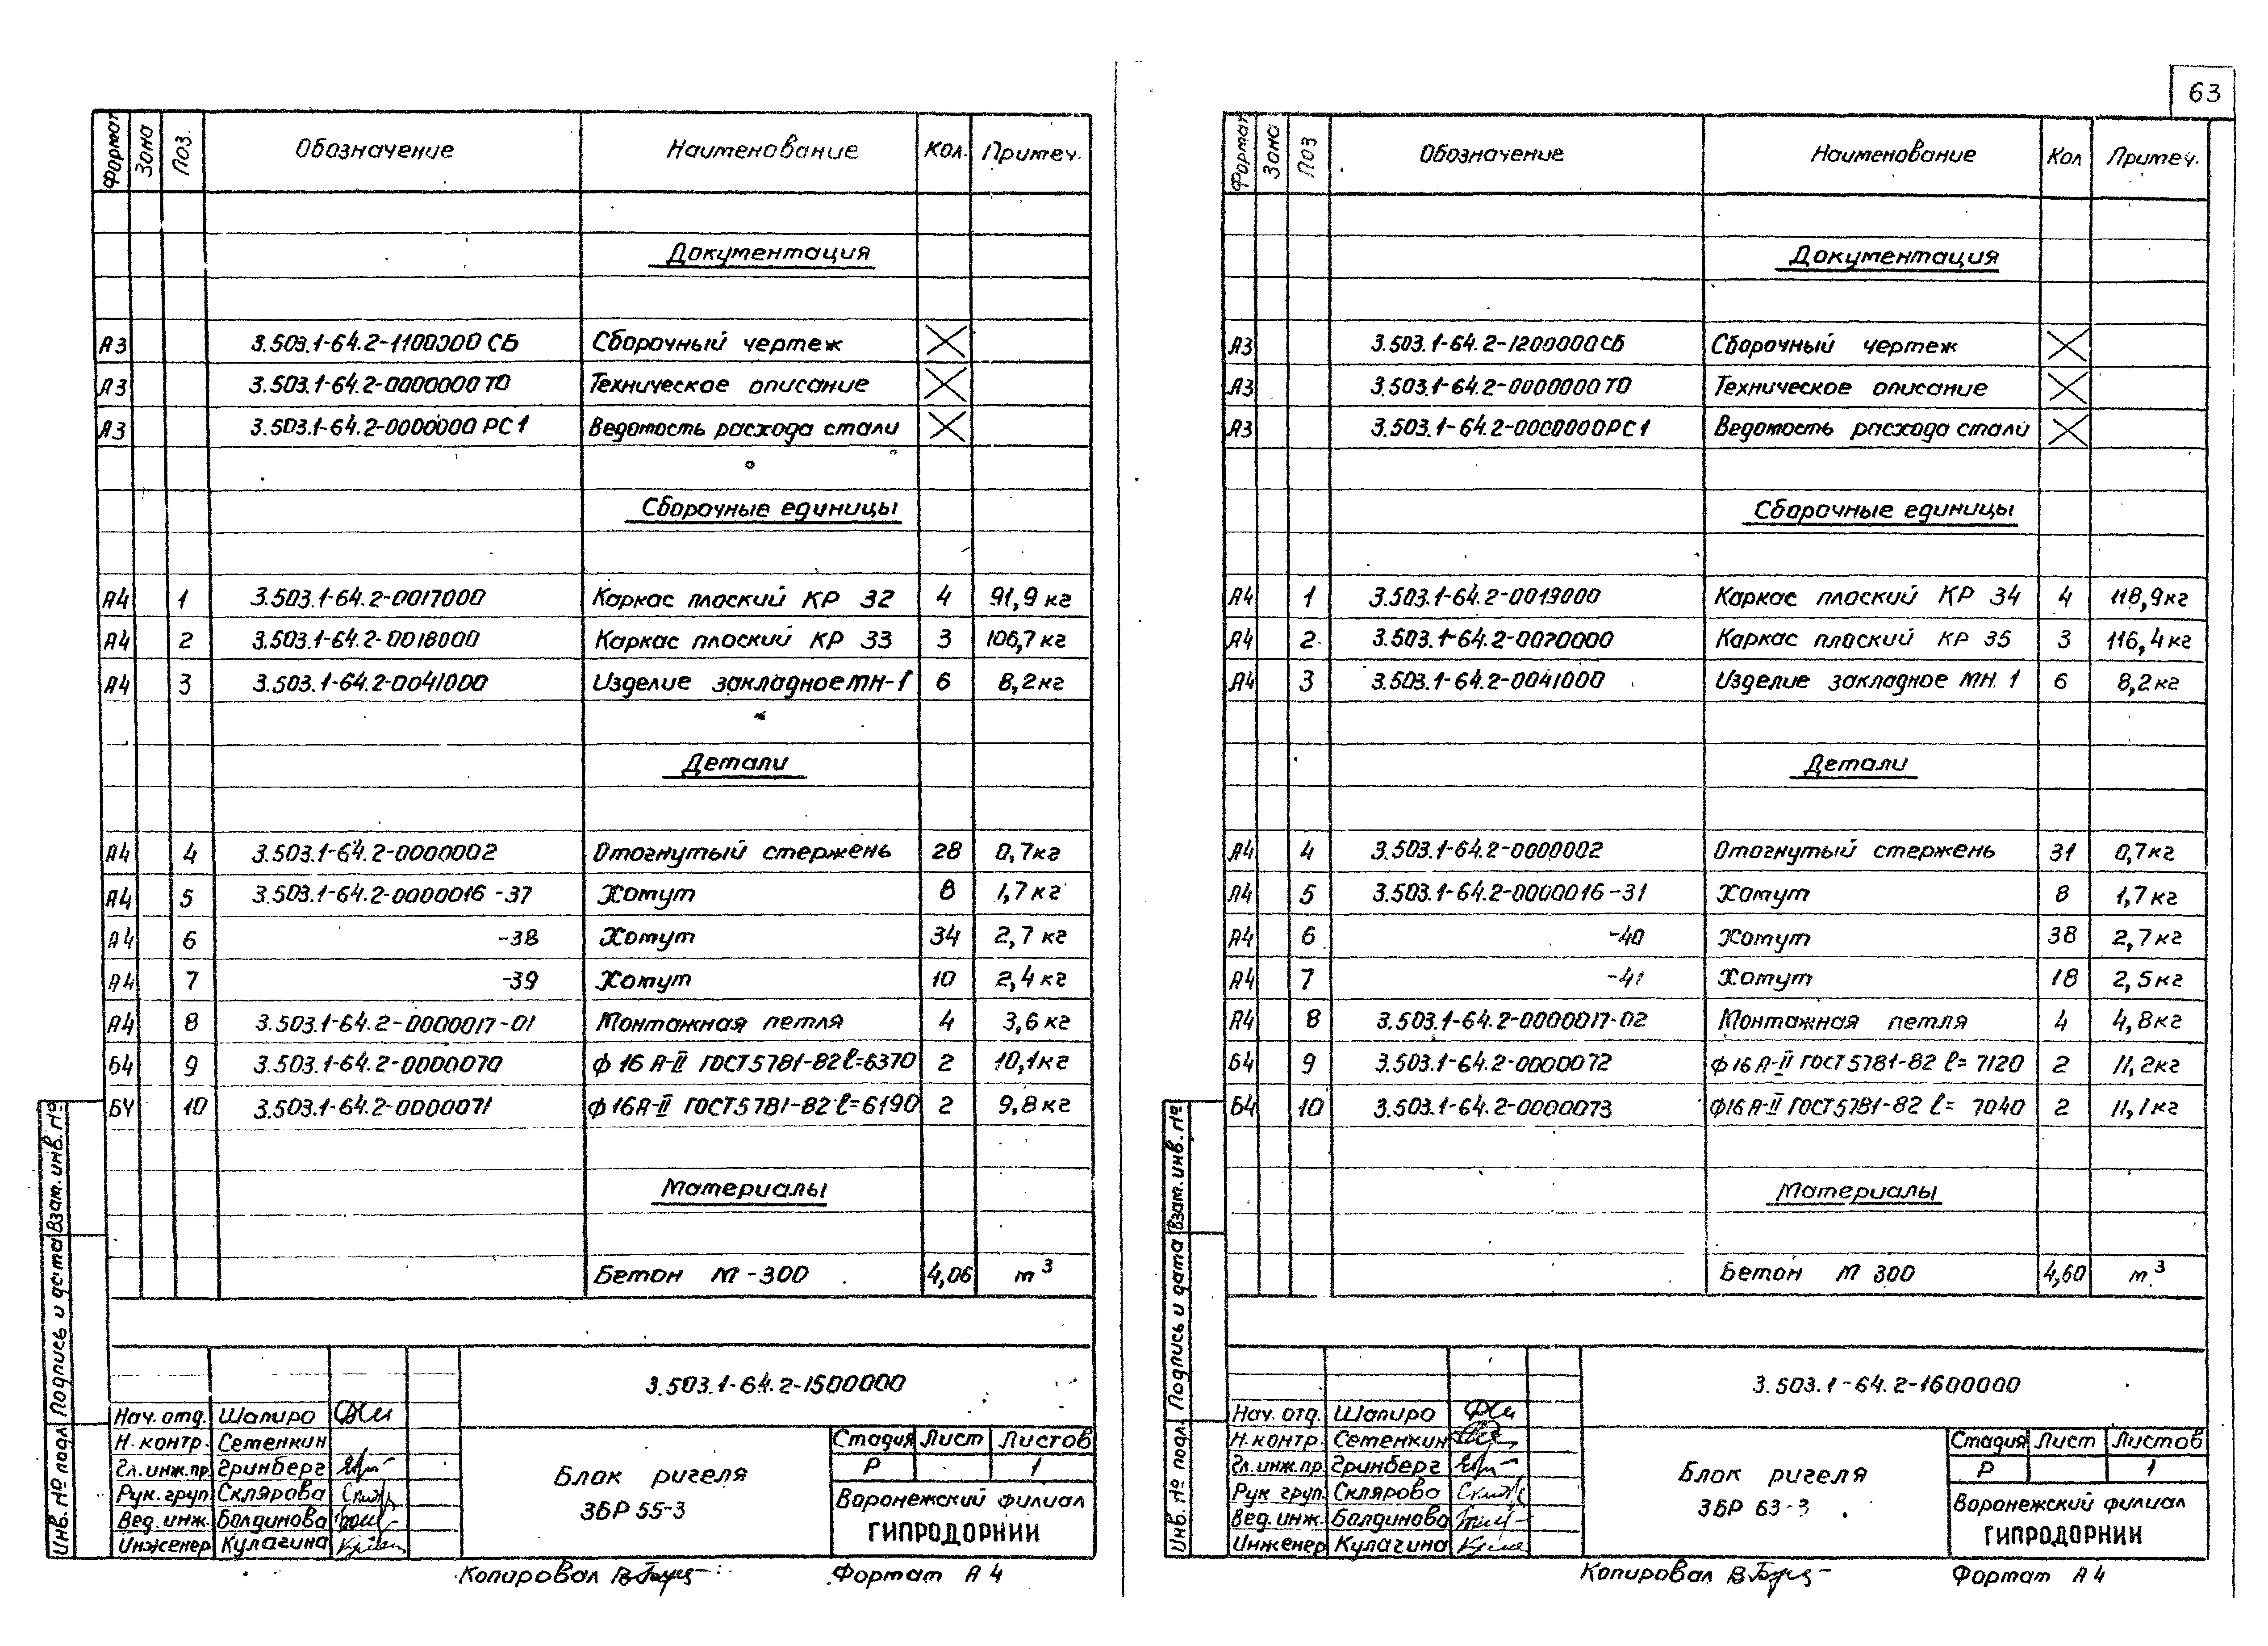 63
Формат Зона Поз. Обозначение Наименование Кол. Примеч.
Документация
А3 3.503.1-64.2-1100000 СБ Сборочный чертеж
А3 3.503.1-64.2-0000000 ТО Техническое описание
А3 3.503.1-64.2-0000000 РС1 Ведомость расхода стали
Сборочные единицы
А4 1 3.503.1-64.2-0017000 Каркас плоский КР 32 4 91,9 кг
А4 2 3.503.1-64.2-0018000 Каркас плоский КР 33 3 106,7 кг
А4 3 3.503.1-64.2-0041000 Изделие закладное МН-1 6 8,2 кг
Детали
А4 4 3.503.1-64.2-0000002 Отогнутый стержень 28 0,7 кг
А4 5 3.503.1-64.2-0000016 -37 Хомут 8 1,7 кг
А4 6 -38 Хомут 34 2,7 кг
А4 7 -39 Хомут 10 2,4 кг
А4 8 3.503.1-64.2-0000017-01 Монтажная петля 4 3,6 кг
Б4 9 3.503.1-64.2-0000070 ф 16 А-II ГОСТ 5781-82 ℓ=6370 2 10,1 кг
Б4 10 3.503.1-64.2-0000071 ф 16 А-II ГОСТ 5781-82 ℓ=6190 2 9,8 кг
Материалы
Бетон М-300 4,06 м³
3.503.1-64.2-1500000
Нач. отд. Шапиро
Н. контр. Семенкин
Гл. инж. пр. Гринберг
Рук. груп. Склярова
Вед. инж. Болдинова
Инженер Кулагина
Блок ригеля
3БР 55-3
Стадия Лист Листов
Р 1
Воронежский филиал
ГИПРОДОРНИИ
Инв. № подл. Подпись и дата Взам. инв. №
Копировал Формат А4
Формат Зона Поз Обозначение Наименование Кол Примеч.
Документация
А3 3.503.1-64.2-1200000 СБ Сборочный чертеж
А3 3.503.1-64.2-0000000 ТО Техническое описание
А3 3.503.1-64.2-0000000 РС1 Ведомость расхода стали
Сборочные единицы
А4 1 3.503.1-64.2-0019000 Каркас плоский КР 34 4 118,9 кг
А4 2 3.503.1-64.2-0020000 Каркас плоский КР 35 3 116,4 кг
А4 3 3.503.1-64.2-0041000 Изделие закладное МН 1 6 8,2 кг
Детали
А4 4 3.503.1-64.2-0000002 Отогнутый стержень 31 0,7 кг
А4 5 3.503.1-64.2-0000016-31 Хомут 8 1,7 кг
А4 6 -40 Хомут 38 2,7 кг
А4 7 -41 Хомут 18 2,5 кг
А4 8 3.503.1-64.2-0000017-02 Монтажная петля 4 4,8 кг
Б4 9 3.503.1-64.2-0000072 ф 16 А-II ГОСТ 5781-82 ℓ= 7120 2 11,2 кг
Б4 10 3.503.1-64.2-0000073 ф 16 А-II ГОСТ 5781-82 ℓ= 7040 2 11,1 кг
Материалы
Бетон М 300 4,60 м³
3.503.1-64.2-1600000
Нач. отд. Шапиро
Н. контр. Семенкин
Гл. инж. пр. Гринберг
Рук груп. Склярова
Вед. инж. Болдинова
Инженер Кулагина
Блок ригеля
3БР 63-3
Стадия Лист Листов
Р 1
Воронежский филиал
ГИПРОДОРНИИ
Инв. № подл. Подпись и дата Взам. инв. №
Копировал Формат А4